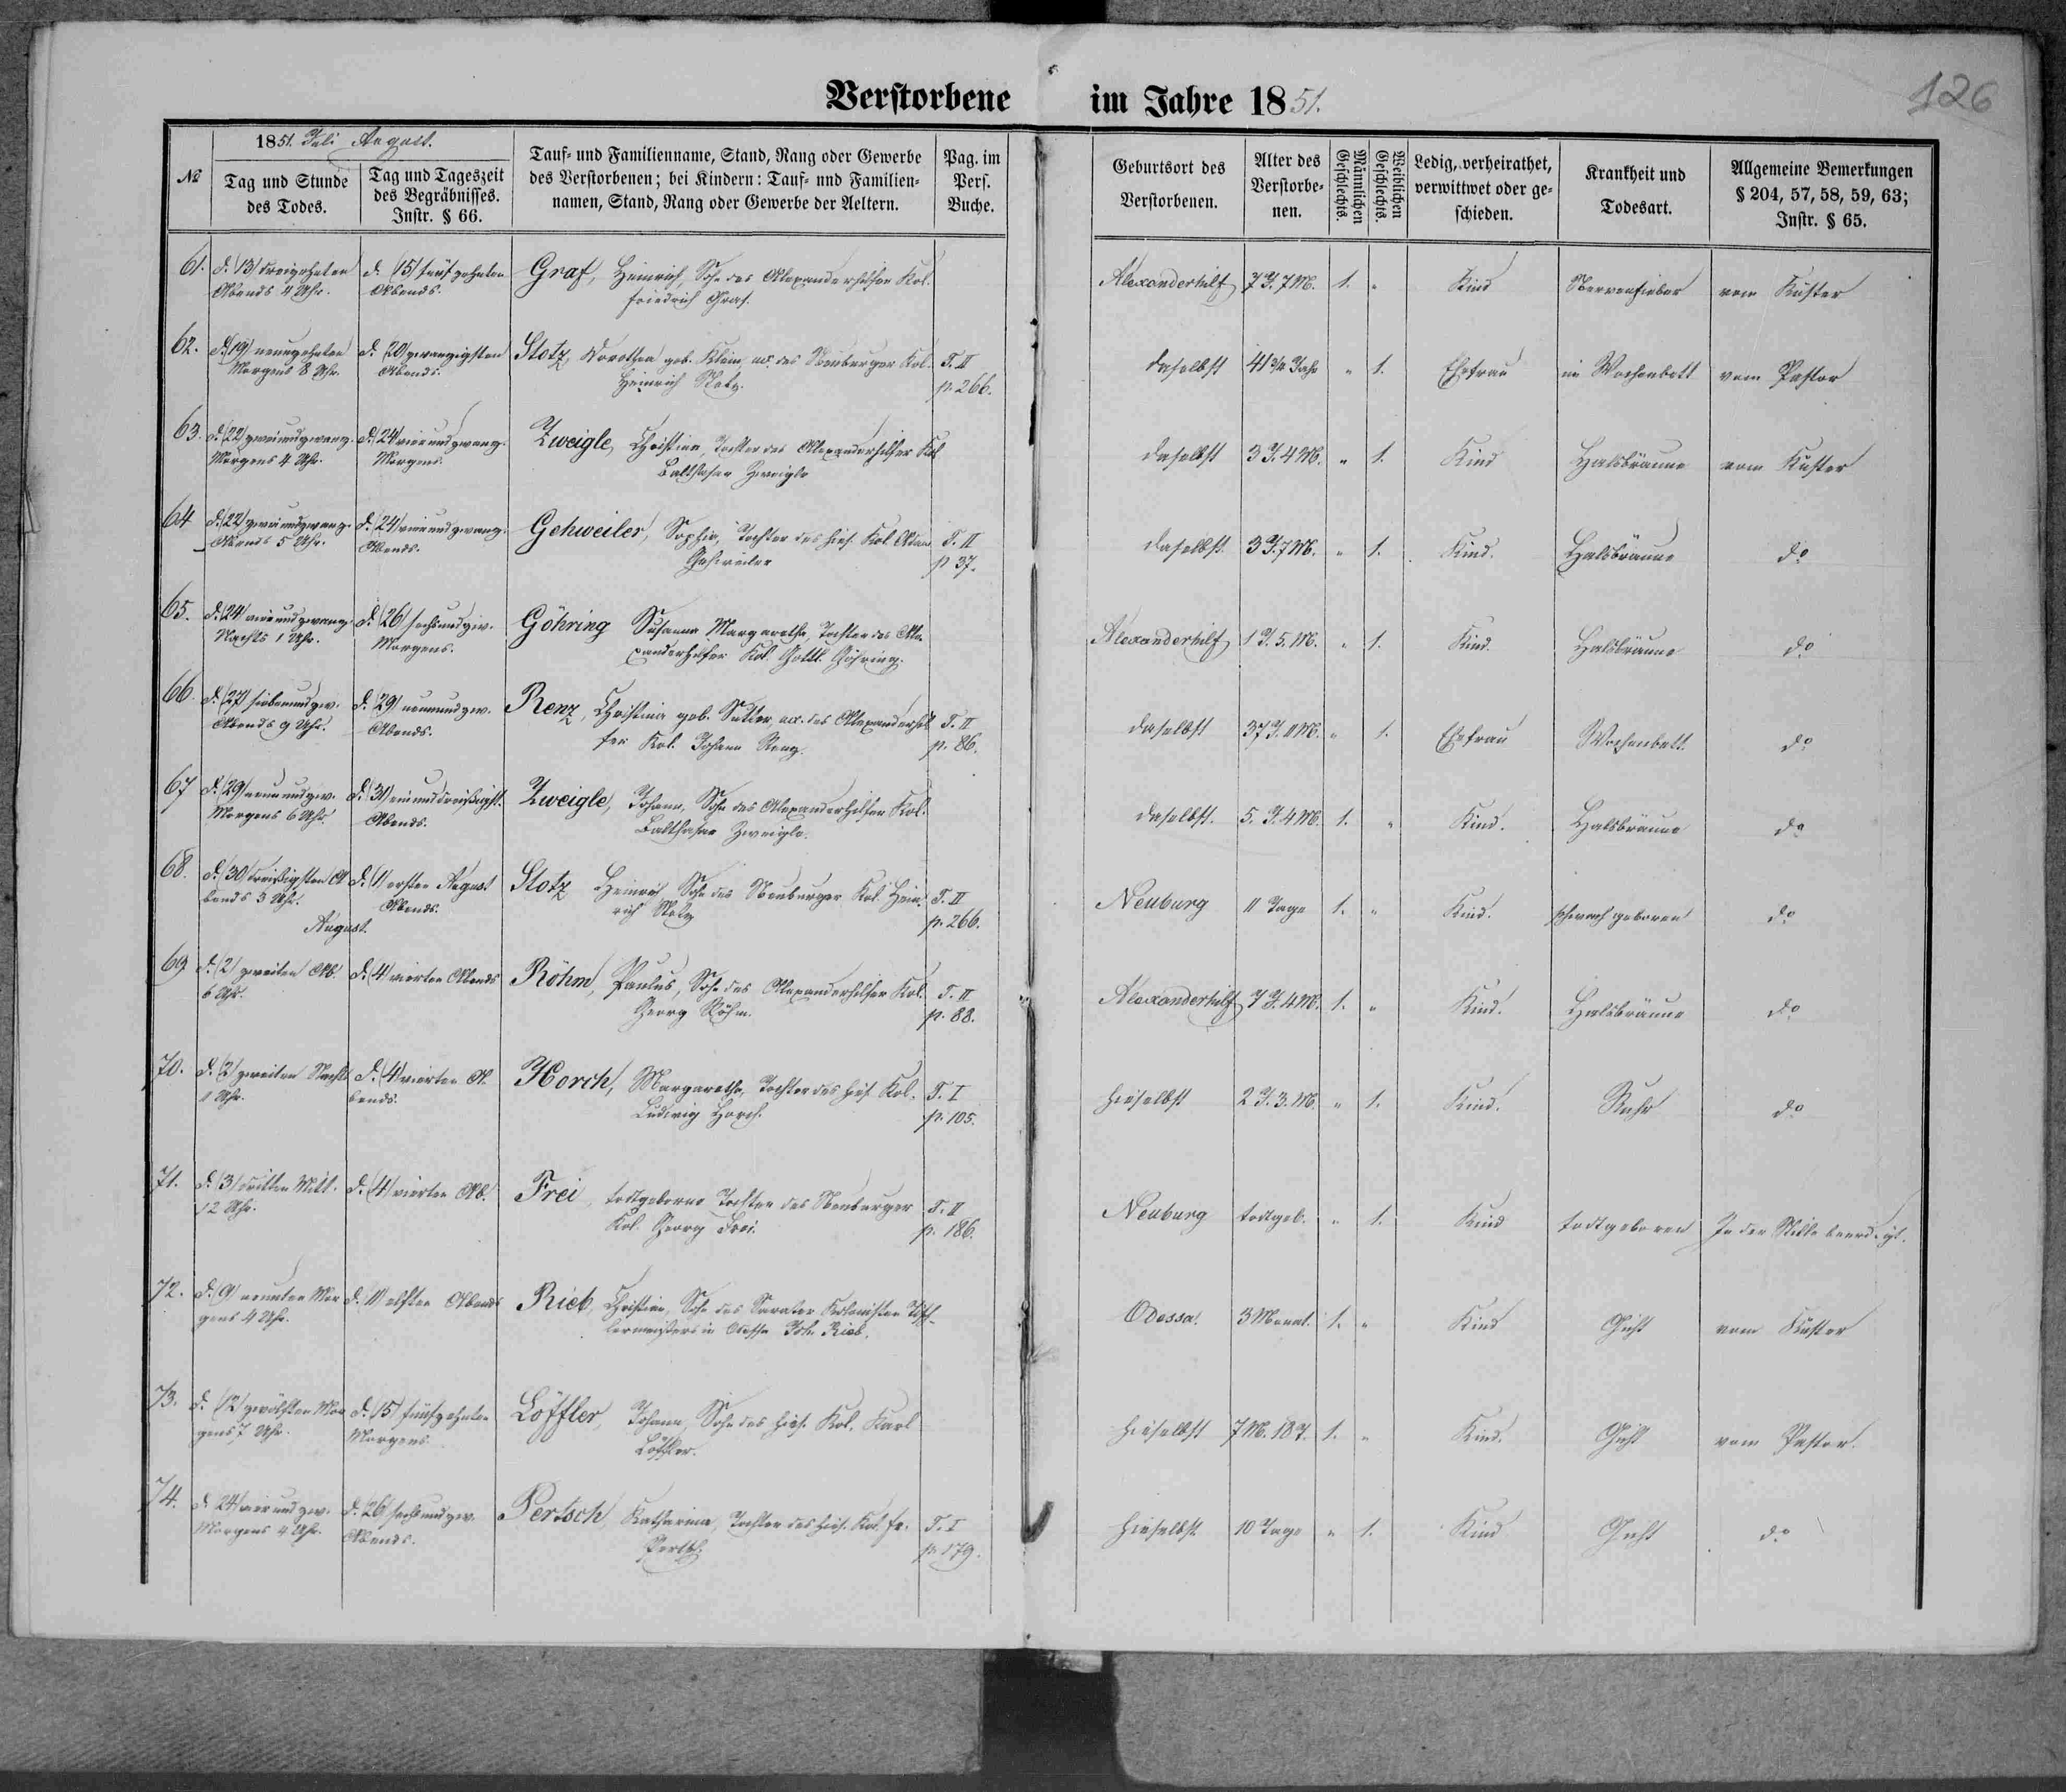 Verstorbene im Jahre 1851.
126
1851. Juli August.
№
Tag und Stunde
des Todes.
Tag und Tageszeit
des Begräbnisses.
Instr. § 66.
Tauf- und Familienname, Stand, Rang oder Gewerbe
des Verstorbenen; bei Kindern: Tauf- und Familien-
namen, Stand, Rang oder Gewerbe der Aeltern.
Pag. im
Pers.
Buche.
Geburtsort des
Verstorbenen.
Alter des
Verstorbe-
nen.
Männlichen
Geschlechts.
Weiblichen
Geschlechts.
Ledig, verheirathet,
verwittwet oder ge-
schieden.
Krankheit und
Todesart.
Allgemeine Bemerkungen
§ 204, 57, 58, 59, 63;
Instr. § 65.
61. d. (13) dreizehnten d. (15) fünfzehnten Graf, Heinrich, Sohn des Alexanderhilfer Kol. Alexanderhilf 7 J. 7 M. 1. „ Kind Nervenfieber vom Küster
Abends 4 Uhr. Abends. Friedrich Graf.
62. d. (19) neunzehnten d. (20) zwanzigsten Stotz, Dorothea geb. Klein, ux. des Neuburger Kol. T. II daselbst 41 3/4 Jahr „ 1. Ehefrau im Wochenbett vom Pastor
Morgens 8 Uhr. Abends. Heinrich Stotz. p. 266.
63. d. (22) zweiundzwanz. d. (24) vierundzwanz. Zweigle, Christina, Tochter des Alexanderhilfer Kol. daselbst 3 J. 4 M. „ 1. Kind Halsbräune vom Küster
Morgens 4 Uhr. Morgens. Balthasar Zweigle
64 d. (22) zweiundzwanz. d. (24) vierundzwanz. Gehweiler, Sophia, Tochter des hies. Kol. Adam T. II daselbst 3 J. 7 M. „ 1. Kind. Halsbräune do
Abends 5 Uhr. Abends. Gehweiler p 37.
65. d. (24) vierundzwanz. d. (26) sechsundzw. Göhring Susanna Margaretha, Tochter des Ale- Alexanderhilf 1 J. 5. M. „ 1. Kind. Halsbräune do
Nachts 1 Uhr. Morgens. xanderhilfer Kol. Gottl. Göhring.
66. d. (27) siebenundzw. d. (29) neunundzw. Renz, Christina geb. Sutter, ux. des Alexanderhil- T. II daselbst 37 J. 11 M. „ 1. Ehefrau Wochenbett do
Abends 9 Uhr. Abends. fer Kol. Johann Renz. p. 86.
67 d. (29) neunundzw. d. (31) einunddreißigst. Zweigle, Johann, Sohn des Alexanderhilfer Kol. daselbst. 5. J. 4 M. 1. „ Kind. Halsbräune do
Morgens 6 Uhr. Abends. Balthasar Zweigle.
68. d. (30) dreißigsten A- d. (1) ersten August Stotz Heinrich Sohn des Neuburger Kol. Hein- T. II Neuburg 11 Tage 1. „ Kind. schwach geboren do
bends 3 Uhr. Abends. rich Stotz p. 266.
August.
69 d. (2) zweiten Ab. d. (4) vierten Abends Röhm, Paulus, Sohn des Alexanderhilfer Kol. T. II Alexanderhilf 7 J. 4 M. 1. „ Kind. Halsbräune do
6 Uhr. Georg Röhm. p. 88.
70. d. (2) zweiten Nachts d. (4) vierten A- Horch, Margaretha, Tochter des hies. Kol. T. I hieselbst 2 J. 3. M. „ 1. Kind. Ruhr do
1 Uhr. bends. Ludwig Horch. p. 105.
71. d. (3) dritten Mitt. d. (4) vierten Ab. Frei todtgeborne Tochter des Neuburger T. II Neuburg todtgeb. „ 1. Kind todtgeboren In der Stille beerdigt.
12 Uhr. Kol. Georg Frei. p. 186.
72. d. (9) neunten Mor- d. (11) elften Abends Rieb, Christian, Sohn des Sarataer Kolonisten Tisch- Odessa. 3 Monat. 1. „ Kind Gicht vom Küster
gens 4 Uhr. lermeisters in Odessa Joh. Rieb.
73. d. (12) zwölften Mor- d. (15) fünfzehnten Löffler, Johann, Sohn des hies. Kol. Karl hieselbst 7 M. 18 T. 1. „ Kind. Gicht vom Pastor.
gens 7 Uhr. Morgens. Löffler.
74. d. 24) vierundzw. d. (26) sechsundzw. Pertsch Katharina, Tochter des hies. Kol. Fr. T. I hieselbst 10 Tage „ 1. Kind Gicht do
Morgens 4 Uhr. Abends. Pertsch. p. 179.